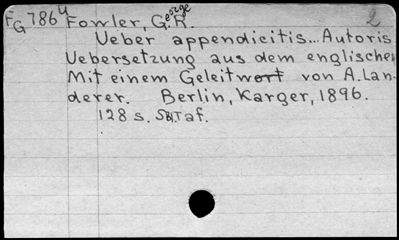 FG 786u Fowler, George R. 2
Ueber appendicitis... Autoris
Uebersetzung aus dem englischen
Mit einem Geleitwort von A. Lan-
derer. Berlin, Karger, 1896.
128 s. Taf.